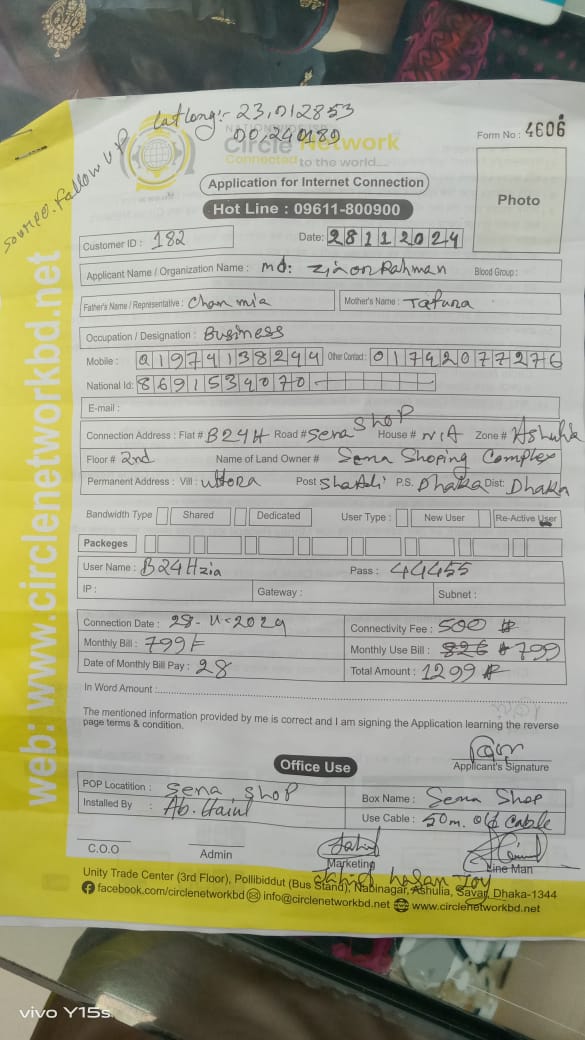 Latlong:- 23.012853
00.240189
source. Fallow UP
Circle Network
Connected to the world....
Form No : 4606
Application for Internet Connection
Hot Line : 09611-800900
Photo
Customer ID : 182 Date: 28112024
Applicant Name / Organization Name : md: Ziaon Rahman Blood Group :
Father's Name / Representative : Chan mia Mother's Name : Tafura
Occupation / Designation : Business
Mobile : 01974138244 Other Contact : 01742077276
National Id: 8691534070
E-mail :
Connection Address : Flat # B24H Road # Sena Shop House # N/A Zone # Ashulia
Floor # 2nd Name of Land Owner # Sena Shoping Complex
Permanent Address : Vill : uttora Post ShaAli P.S. Dhaka Dist: Dhaka
Bandwidth Type Shared Dedicated User Type : New User Re-Active User
Packeges
User Name : B24Hzia Pass : 44455
IP : Gateway : Subnet :
Connection Date : 28-11-2024 Connectivity Fee : 500
Monthly Bill : 799 Monthly Use Bill : 826 799
Date of Monthly Bill Pay : 28 Total Amount : 1299
In Word Amount :
The mentioned information provided by me is correct and I am signing the Application learning the reverse
page terms & condition.
Applicant's Signature
Office Use
POP Locatition : Sena Shop Box Name : Sena Shop
Installed By : Use Cable : 50m. old Cable
C.O.O Admin Marketing Line Man
Unity Trade Center (3rd Floor), Pollibiddut (Bus Stand), Nabinagar, Ashulia, Savar, Dhaka-1344
facebook.com/circlenetworkbd info@circlenetworkbd.net www.circlenetworkbd.net
web: www.circlenetworkbd.net
vivo Y15s